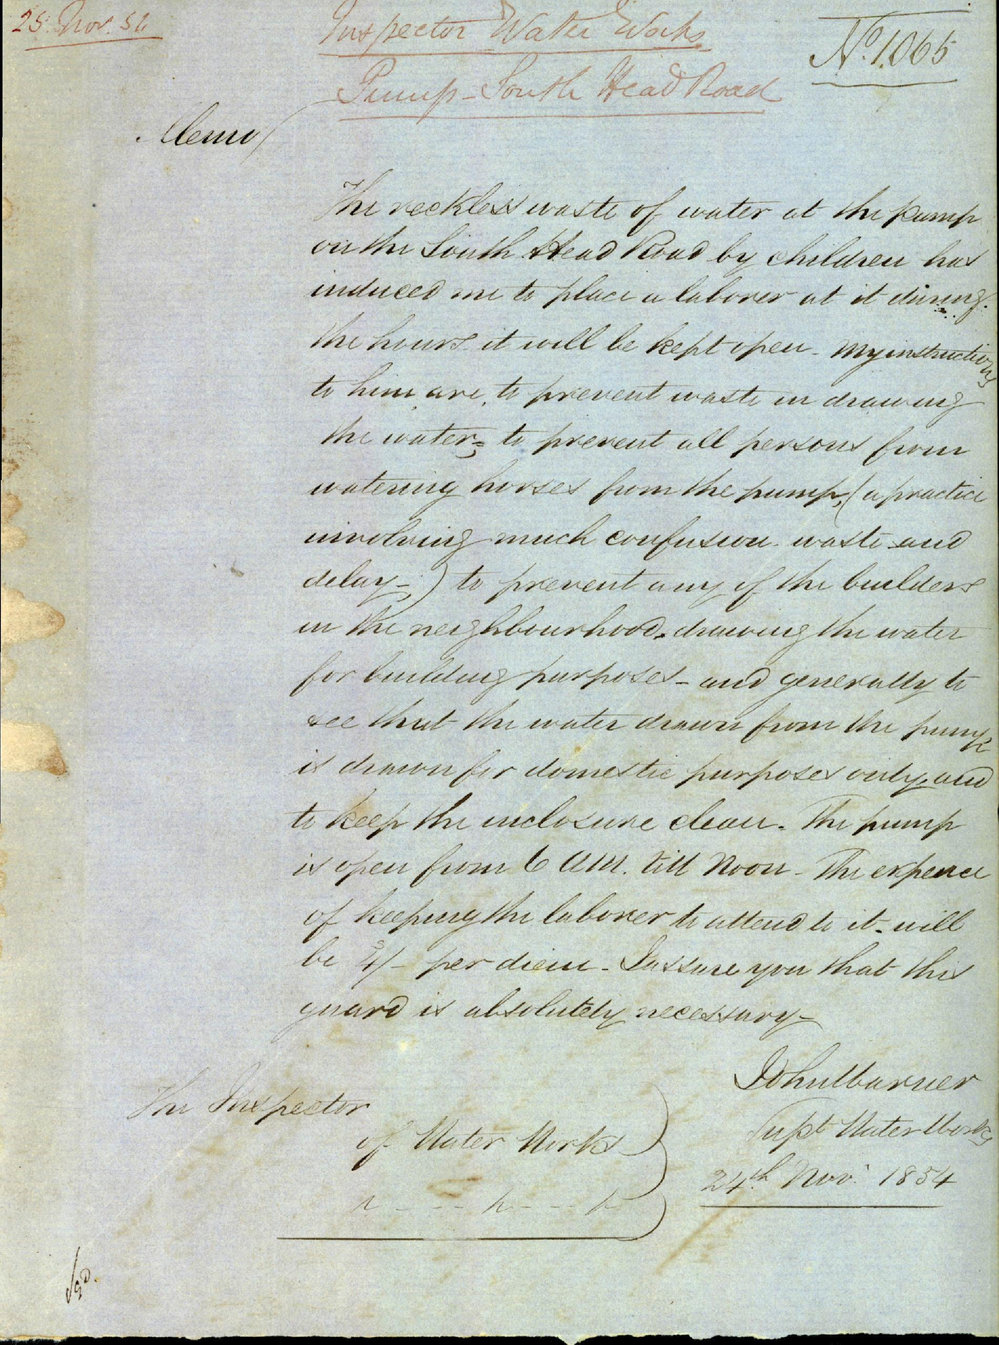 25. Nov. 54
Inspector Water Works
No. 1065
Pump - South Head Road
Memo/
The reckless waste of water at the pump
on the South Head Road by children has
induced me to place a laborer at it during
the hours it will be kept open - My instructions
to him are, to prevent waste in drawing
the water; to prevent all persons from
watering horses from the pump, (a practice
involving much confusion waste and
delay -) to prevent any of the builders
in the neighbourhood drawing the water
for building purposes - and generally to
see that the water drawn from the pump
is drawn for domestic purposes only, and
to keep the inclosure clean. The pump
is open from 6 AM. till Noon - The expence
of keeping the laborer to attend to it will
be /- per diem - I assure you that this
guard is absolutely necessary -
John Warner
Supt Water Works
24th Nov. 1854
The Inspector
of Water Works